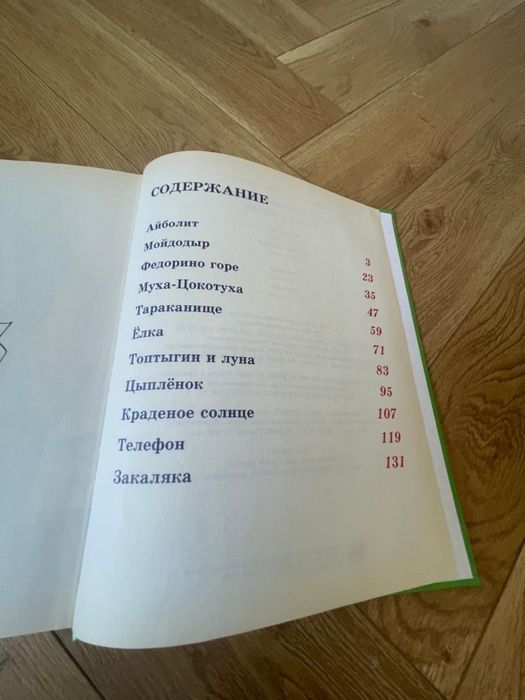 СОДЕРЖАНИЕ
Айболит 3
Мойдодыр 23
Федорино горе 35
Муха-Цокотуха 47
Тараканище 59
Ёлка 71
Топтыгин и луна 83
Цыплёнок 95
Краденое солнце 107
Телефон 119
Закаляка 131